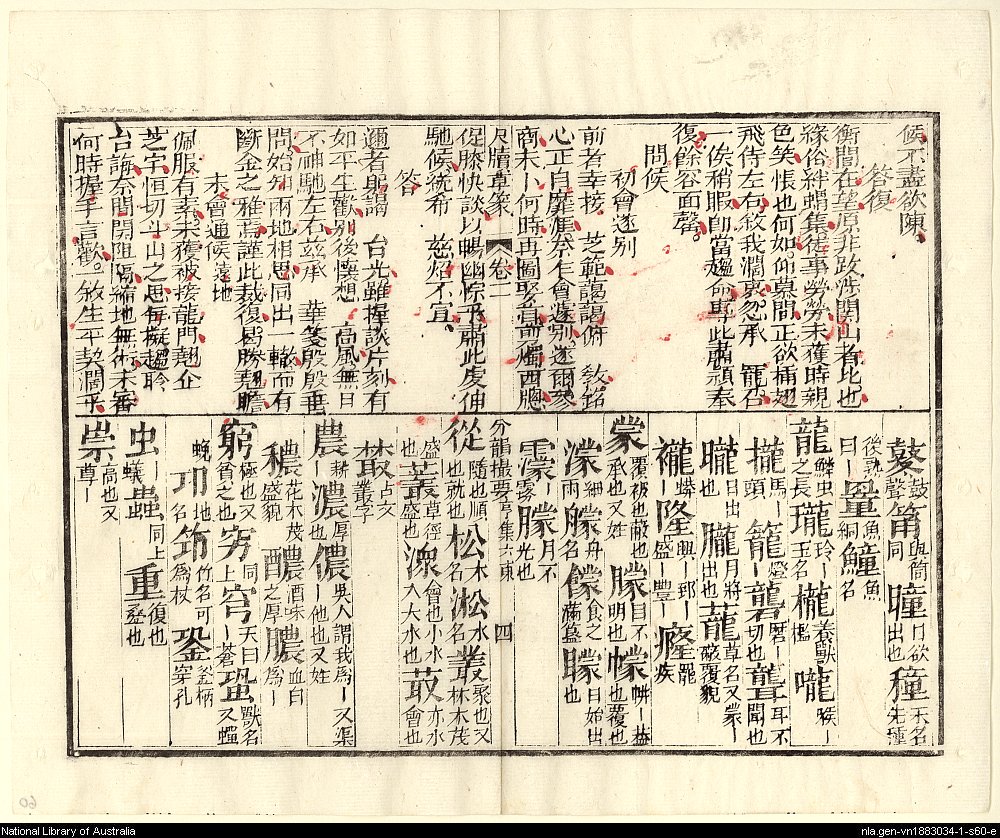 候不盡欲陳
答復
衡閭在望原非政洗関山者比也
緣俗絆蝟集徒事勞勞未獲時親
色笑悵也何如仰慕間正欲揷翅
飛侍左右敘我濶衷忽承 寵召
一俟稍暇卽當趨命專此肅頑奉
復餘容面罄
問候
初會遂別
前者幸接 芝範謁謁俯 敎銘
心正自靡涯奈乍會遂別遂爾參
商未卜何時再圖聚首剪燭西牕
尺牘草彚 卷二
促膝快談以暢幽悰乎肅此虔伸
馳候統希 慈炤不宣
答
邇者躬謁 台光雖握談片刻有
如平生歡别後懷想 高風無日
不神馳左右玆承 華箋殷殷垂
問始知兩地相思同出一轍而有
斷金之雅焉謹此裁復曷勝翹瞻
未會通候遠地
佩服有素未獲被接龍門翹企
芝宇恒切斗山之思每擬趨聆
台誨奈關開阻隔縮地無術未審
何時握手言歡一敘生平契濶乎
鼕鼓聲 筩與筒同 曈日欲出也 穜禾名先種
後熟曰 罿罔 鱣魚名
龍鱗虫之長 瓏玲玉名 櫳養獸檻 嚨喉
攏馬頭 籠燈 礱磨切也 聾耳不聞也
曨日出也 朧月將出也 蘢草名又蒙蘢覆貌
襱蟒 隆興盛 酆豐 癃罷疾
蒙覆被也蔽也承也又姓 矇目不明也 幪帡蓋也覆也
濛細雨 艨舟名 饛食之滿盛 曚日始出也
霿雺 朦月不光也
分韻撮要 音集六東 四
從隨也順也就也 松木名 淞水名 叢聚也又林木茂
盛也 䕺草徑盛也 潨會也小水入大水也 菆亦水會也
樷古文叢字
農耕 濃厚也 儂吳人謂我為他也又姓 又渠
穠花木茂盛貌 醲酒味之厚 膿為血白
窮極也又貧之也 穷同上 穹天曰蒼 蛩獸名又蟋
蜣 邛地名 筇竹名可為杖 銎釜柄穿孔
虫蟻 蟲同上 重復也疊也
崇高也又尊
National Library of Australia
nla.gen-vn1883034-1-s60-e